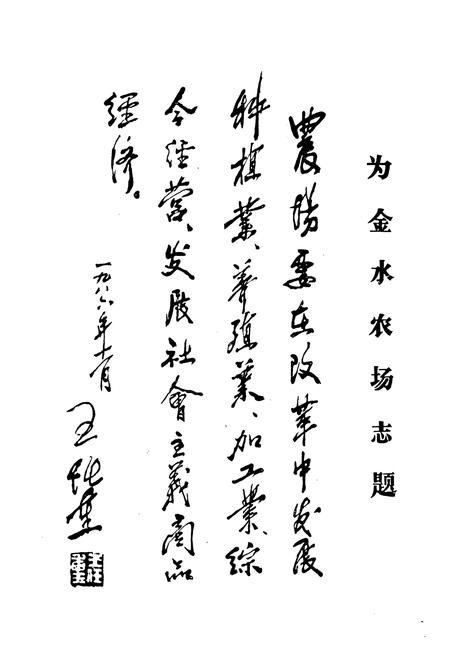 为金水农场志题
農場要在改革中发展
种植業、養殖業、加工業、綜
合经营、发展社會主義商品
經济。
一九八六年十一月
王